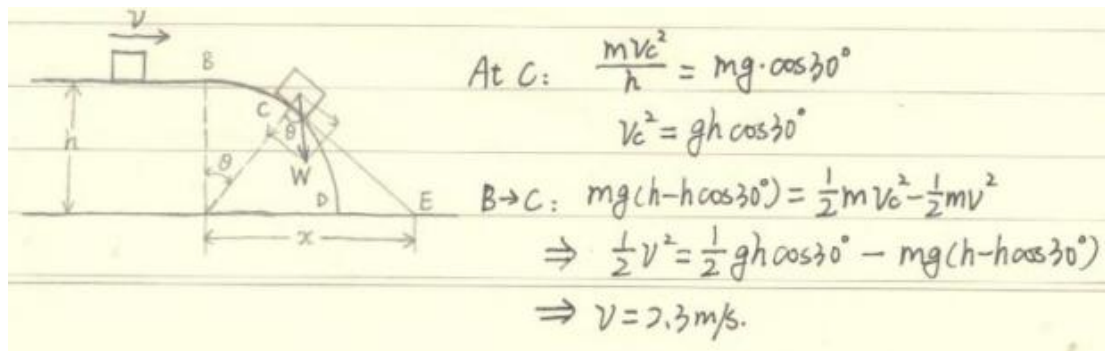 v
B
C
θ
h
θ
W
D
E
x
At C: mv_c²/h = mg·cos30°
v_c² = gh cos30°
B→C: mg(h-hcos30°) = ½mv_c² - ½mv²
⇒ ½v² = ½gh cos30° - mg(h-hcos30°)
⇒ v = 2.3m/s.